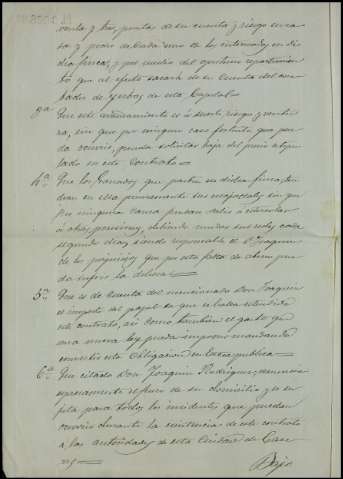 venta y tres, punta de su cuenta y riesgo en ca-
so y pedro de cada uno de los interesados en di
cha finca, y por medio del oportuno repartimien
to que al efecto sacará de su cuenta del
de Yerbas de esta Capital
3ª Que este arrendamiento es á suerte riesgo y ventu
ra, sin que por ningun caso fortuito que pue
da ocurrir, pueda solicitar baja del precio estipu
lado en este Contrato.
4ª Que los Ganados que paste en dichas fincas, ten
dran en ella precisamente sus majadales sin que
por ninguna causa puedan salir a
á otras posesiones, debiendo mudar sus redes cada
segundo dia, siendo responsable el D. Joaquin
de los perjuicios que por esta falta de abono pue
da sufrir la dehesa.
5ª Que es de cuenta del mencionado Don Joaquin
el importe del papel en que se halla estendido
este contrato, asi como tambien el gasto que
una nueva ley pueda imponer mandando
convertir esta Obligacion en Escra publica.
6ª Que citado Don Joaquin Rodriguez, renuncia
expresamente el fuero de su domicilio y se su
jeta para todos los incidentes que puedan
ocurrir durante la existencia de este contrato
a las autoridades de esta Ciudad de Cace
res
Bajo